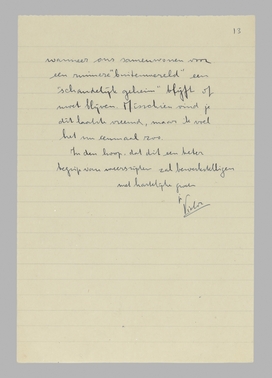 13
wanneer ons samenwonen voor
een ruimere "buitenwereld" een
"schandelijk geheim" blijft of
moet blijven. Misschien vind je
dit laatste vreemd, maar is
het nu eenmaal zoo.
In den hoop, dat dit een beter
begrip van weerszijden zal bewerkstelligen
met hartelijke groeten
Victor